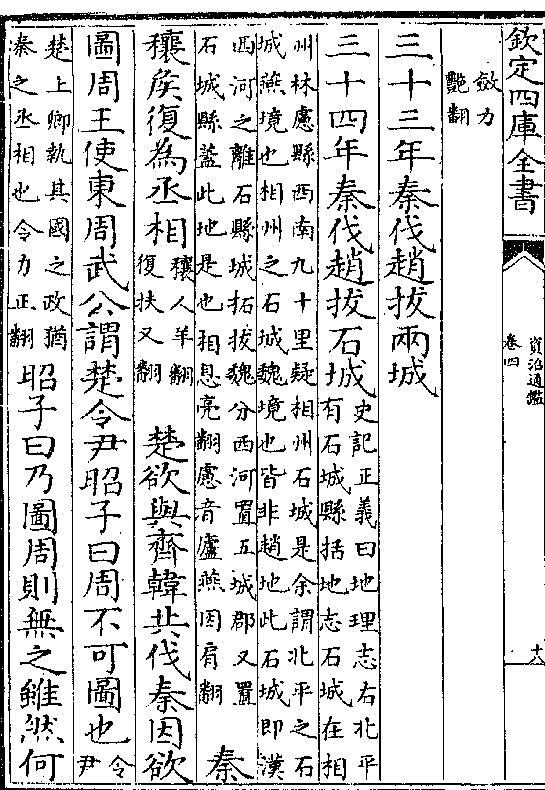 欽定四庫全書
資治通鑑
卷四
十八
斂力
豔翻
三十三年秦伐趙拔兩城
三十四年秦伐趙拔石城
史記正義曰地理志右北平
有石城縣括地志石城在相
州林慮縣西南九十里疑相州石城是余謂北平之石
城燕境也相州之石城魏境也皆非趙地此石城即漢
西河之離石縣城拓拔魏分西河置五城郡又置
石城縣蓋此地是也相息亮翻慮音廬燕因肩翻
秦
穰侯復為丞相
穰人羊翻
復扶又翻
楚欲與齊韓共伐秦因欲
圖周王使東周武公謂楚令尹昭子曰周不可圖也
令
尹
楚上卿執其國之政猶
秦之丞相也令力正翻
昭子曰乃圖周則無之雖然何